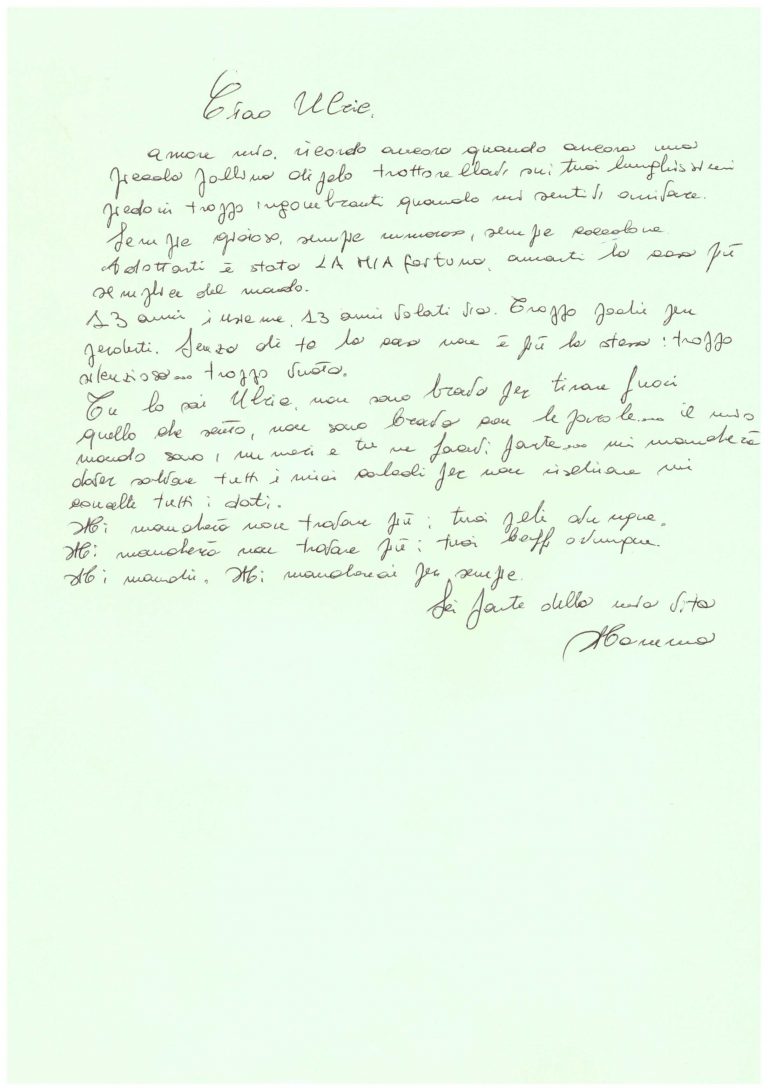 Ciao Ulrie.
amore mio, ricordo ancora quando ancora una
piccola pallina di pelo trottorellavi sui tuoi lunghissimi
piedoni troppo ingombranti quando mi sentivi arrivare.
Sempre gioioso, sempre rumoroso, sempre coccolone.
Adottarti è stata LA MIA fortuna, amarti la cosa più
semplice del mondo.
13 anni insieme, 13 anni volati via. Troppo pochi per
perderti. Senza di te la casa non è più la stessa: troppo
silenziosa... troppo vuota.
Tu lo sai Ulrie, non sono brava per tirare fuori
quello che sento, non sono brava con le parole... il mio
mondo sono i numeri e tu ne facevi parte... mi mancherà
dover salvare tutti i miei calcoli per non rischiare mi
cancelli tutti i dati.
Mi mancherà non trovare più i tuoi peli ovunque.
Mi mancherà non trovare più i tuoi baffi ovunque.
Mi manchi. Mi mancherai per sempre.
Sei parte della mia vita
Mamma